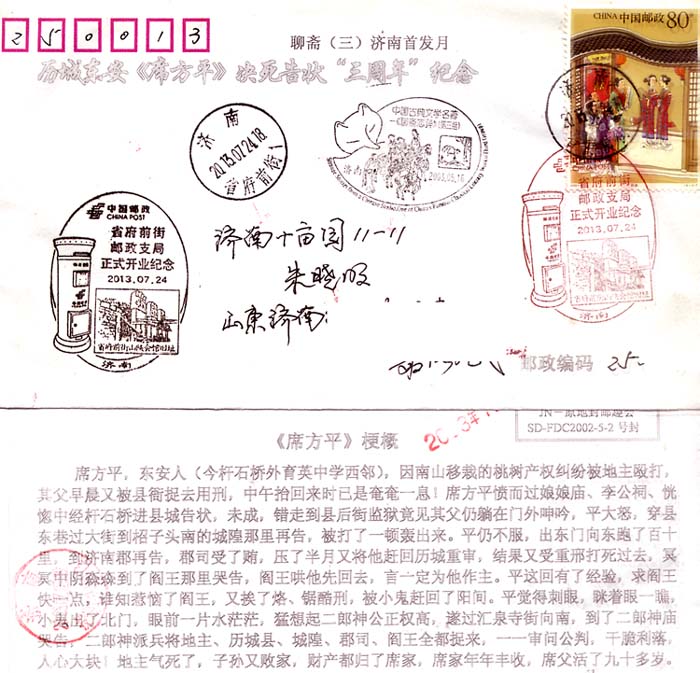 250013
聊斋（三）济南首发月
历城东安《席方平》决死告状“三周年”纪念
CHINA 中国邮政 80分
济南
2013.07.24.18
省府前街
中国古典文学名著
济南
2003.05.16
中国邮政
CHINA POST
省府前街
邮政支局
正式开业纪念
2013.07.24
省府前街山陕会馆旧址
济南
省府前街
邮政支局
正式开业纪念
2013.07.24
济南
济南十亩园11-11
山东济南:
邮政编码 25
JN-原地封邮趣会
SD-FDC2002-5-2 号封
《席方平》梗概
席方平，东安人（今杆石桥外育英中学西邻），因南山移栽的桃树产权纠纷被地主殴打，
其父早晨又被县衙捉去用刑，中午抬回来时已是奄奄一息！席方平愤而过娘娘庙、李公祠、恍
惚中经杆石桥进县城告状，未成，错走到县后街监狱竟见其父仍躺在门外呻吟，平大怒，穿县
东巷过大街到棓子头南的城隍那里再告，被打了一顿轰出来。平仍不服，出东门向东跑了百十
里，到济南郡再告，郡司受了贿，压了半月又将他赶回历城重审，结果又受重刑打死过去，冥
冥中阴森森到了阎王那里哭告，阎王哄他先回去，言一定为他作主。平这回有了经验，求阎王
快一点，谁知惹恼了阎王，又挨了烙、锯酷刑，被小鬼赶回了阳间。平觉得刺眼，眯着眼一瞧，
小鬼出了北门，眼前一片水茫茫，猛想起二郎神公正权高，遂过汇泉寺街向南，到了二郎神庙
哭告，二郎神派兵将地主、历城县、城隍、郡司、阎王全都捉来，一一审问公判，干脆利落，
人心大块！地主气死了，子孙又败家，财产都归了席家，席家年年丰收，席父活了九十多岁。